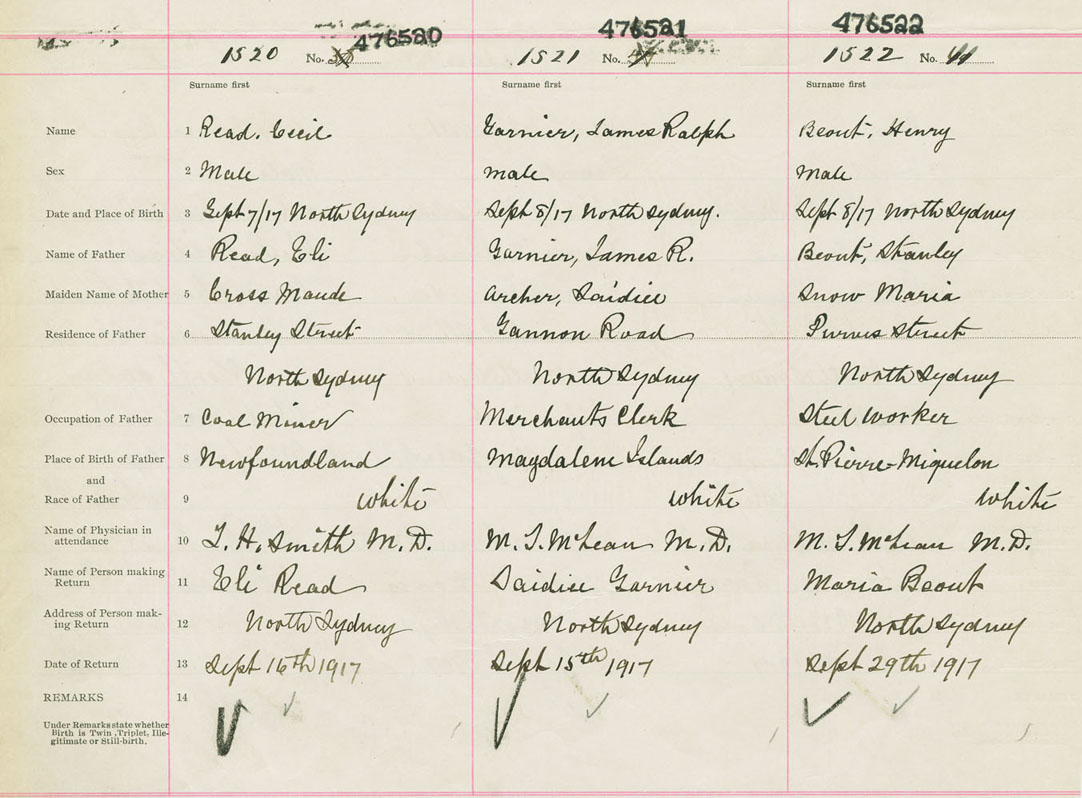 476520 476521 476522
1520 No. 1521 No. 1522 No. 41
Surname first Surname first Surname first
Name 1 Read, Cecil Garnier, James Ralph Beout, Henry
Sex 2 Male male male
Date and Place of Birth 3 Sept 7/17 North Sydney Sept 8/17 North Sydney. Sept 8/17 North Sydney
Name of Father 4 Read, Eli Garnier, James R. Beout, Stanley
Maiden Name of Mother 5 Cross Maude Archer, Saidie Snow Maria
Residence of Father 6 Stanley Street Gannon Road Purves Street
North Sydney North Sydney North Sydney
Occupation of Father 7 Coal Miner Merchants Clerk Steel Worker
Place of Birth of Father 8 Newfoundland Magdalene Islands St. Pierre-Miquelon
and
Race of Father 9 white white white
Name of Physician in
attendance 10 T. H. Smith M.D. M. T. McLean M.D. M. T. McLean M.D.
Name of Person making
Return 11 Eli Read Saidie Garnier Maria Beout
Address of Person mak-
ing Return 12 North Sydney North Sydney North Sydney
Date of Return 13 Sept 16th 1917 Sept 15th 1917 Sept 29th 1917
REMARKS 14
Under Remarks state whether
Birth is Twin, Triplet, Ille-
gitimate or Still-birth.